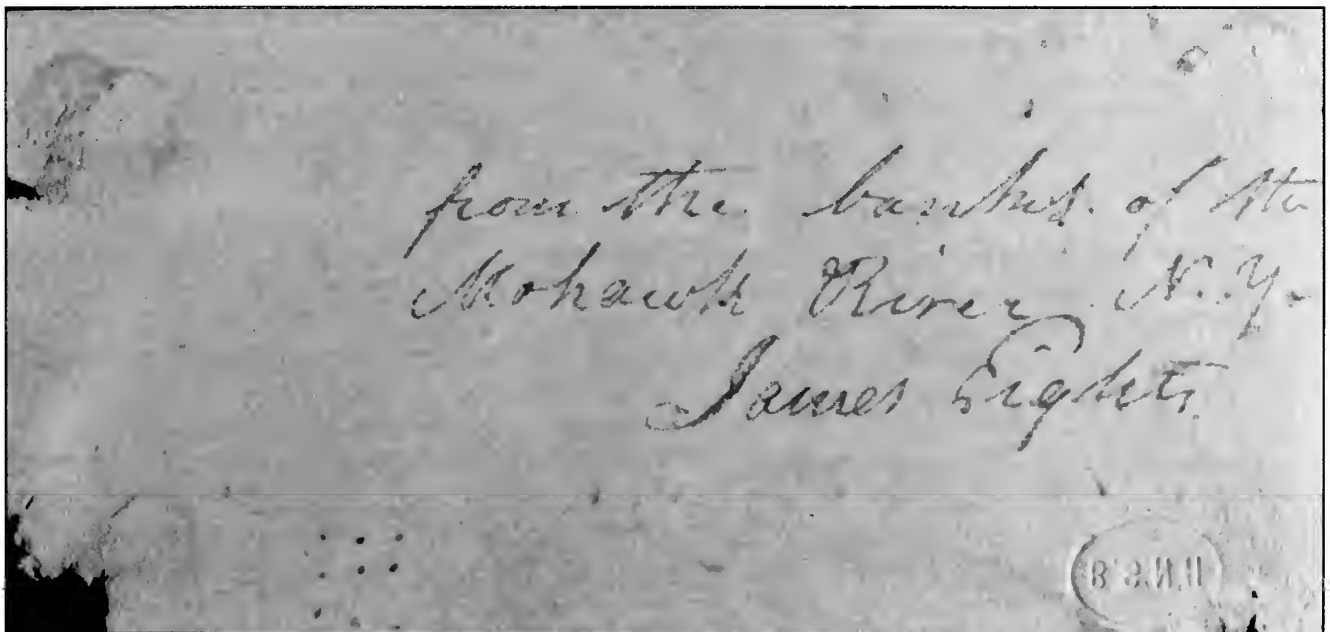 from the banks of the
Mohawk River N.Y.
James Eights